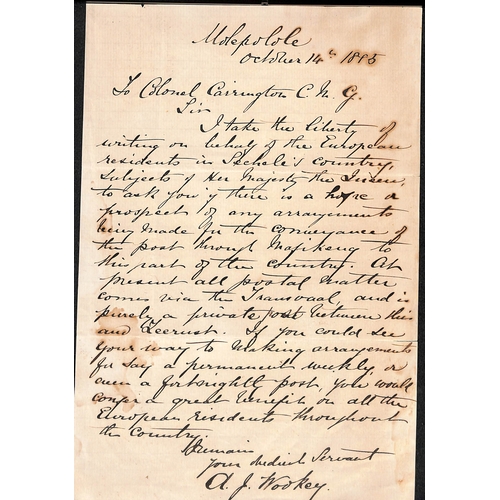 Molepolole
October 14th 1885
To Colonel Carrington C. M. G.
Sir
I take the liberty of
writing on behalf of the European
residents in Sechele's country,
subjects of Her Majesty the Queen,
to ask you if there is a hope or
prospect of any arrangements
being made for the conveyance of
the post through Mafikeng to
this part of the country. At
present all postal matter
comes via the Transvaal, and is
purely a private post between this
and Zeerust. If you could see
your way to making arrangements
for say a permanent weekly, or
even a fortnightly post, you would
confer a great benefit on all the
European residents throughout
the country.
I remain
Your obedient Servant
A. J. Wookey.